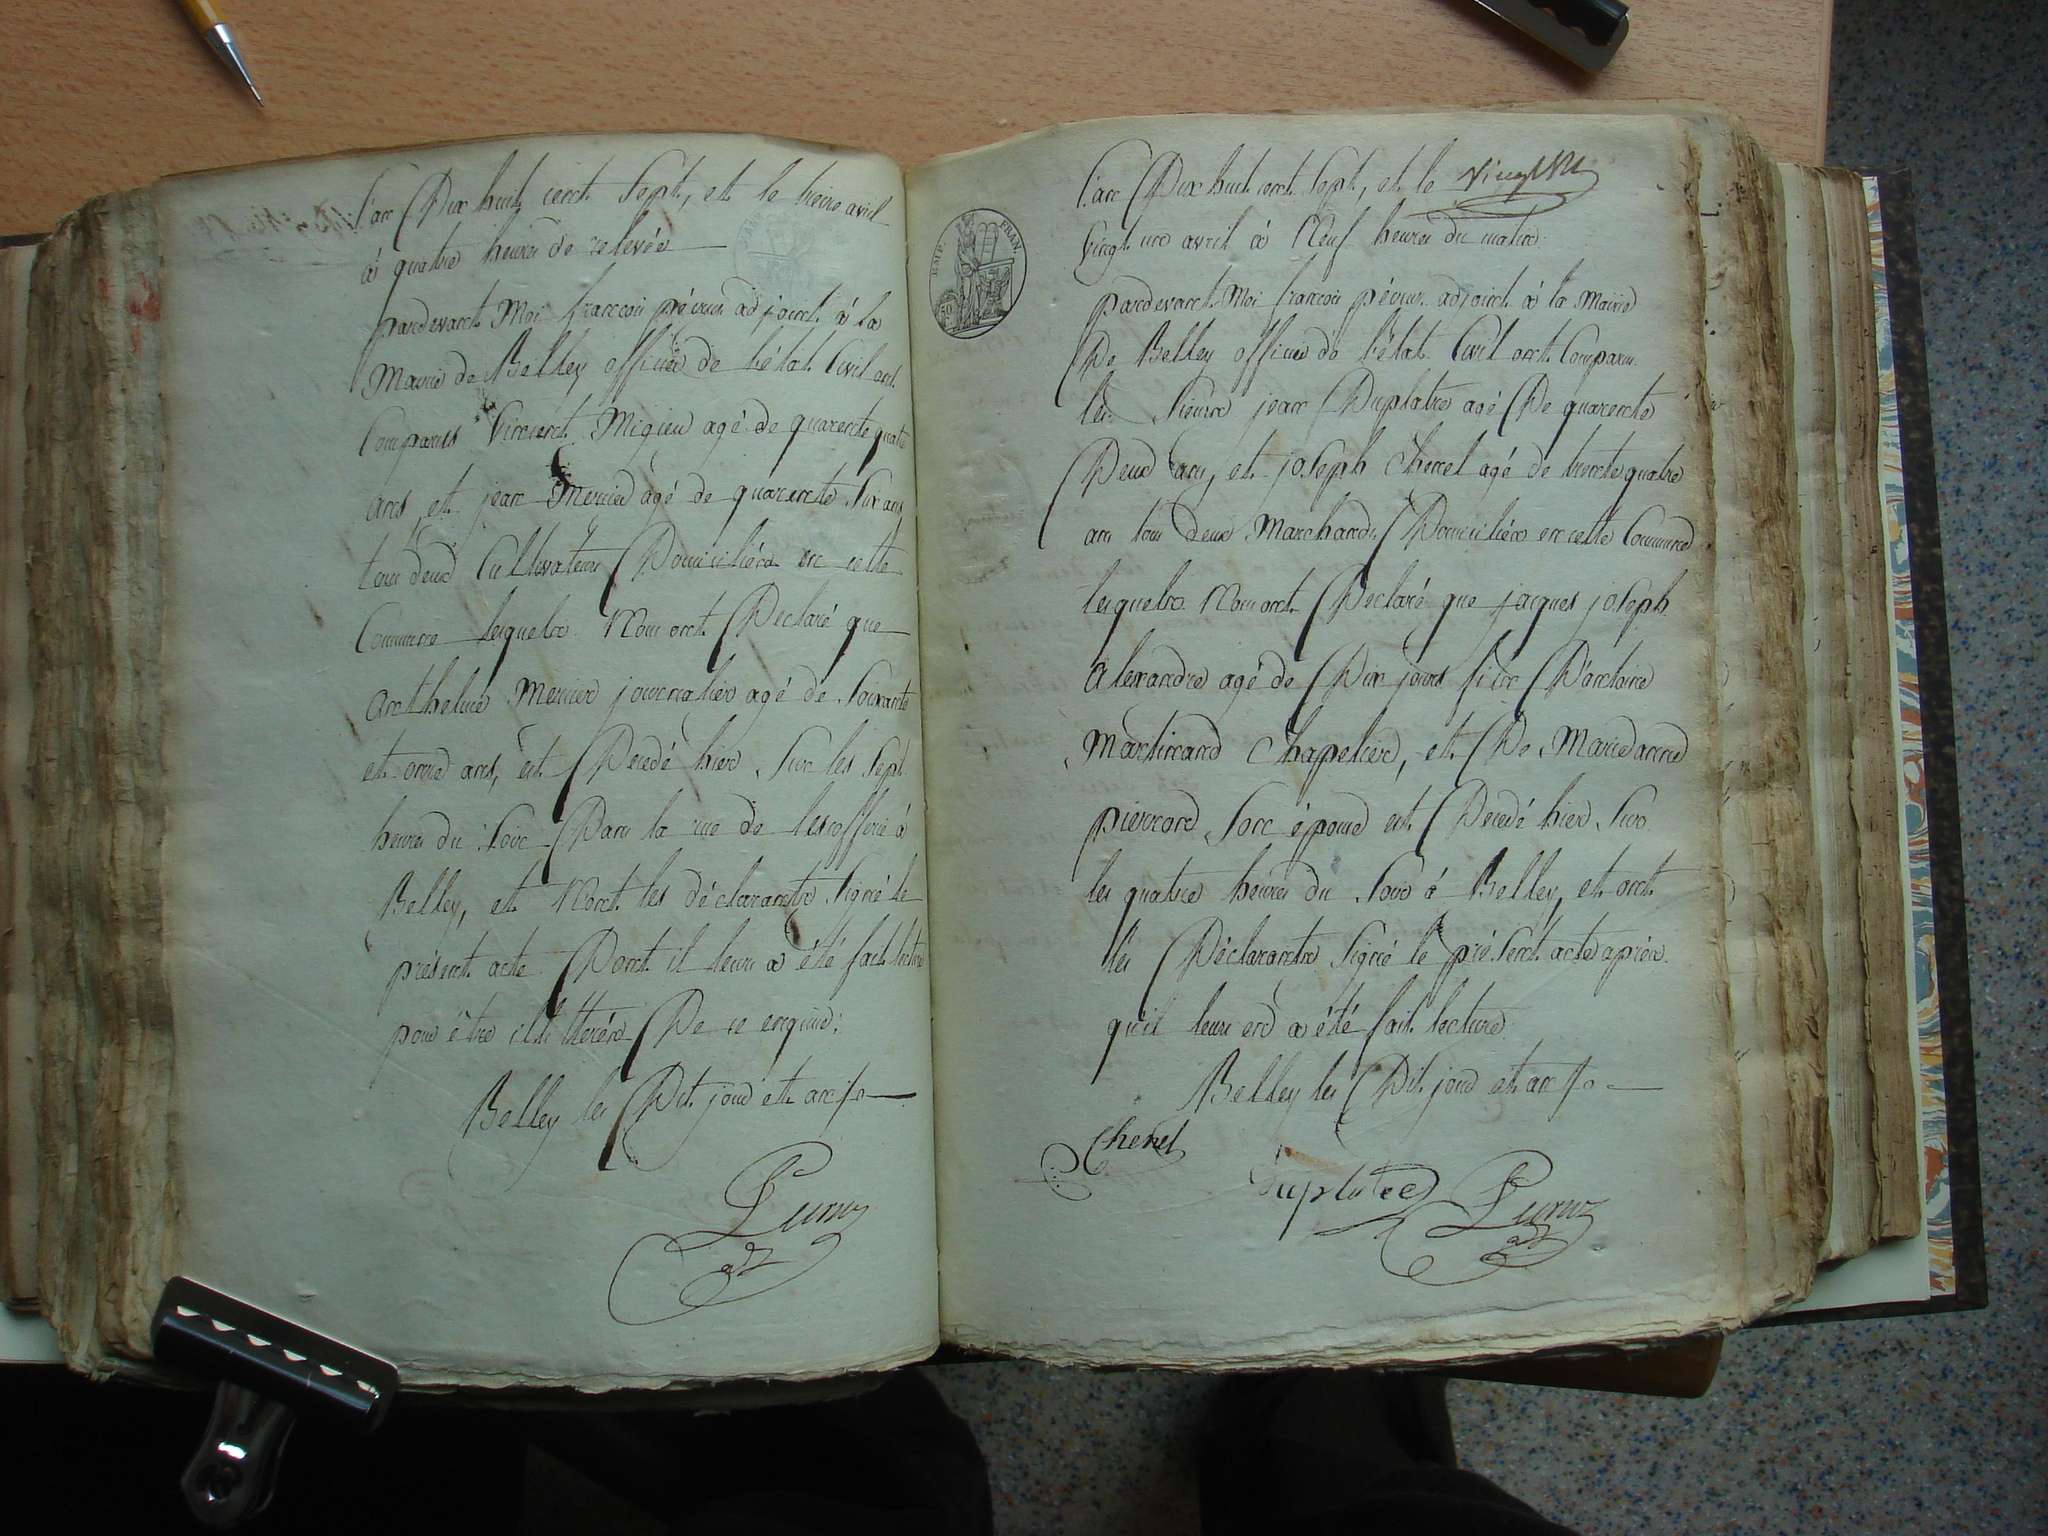 l'an Dix huit cent Sept, et le treize avril
à quatre heures de relevée
pardevant Moi françois adjoint à la
Mairie de Belley officier de l'état Civil ont
Comparus Vincent Migieu agé de quarente quatre
ans, et jean Mercier agé de quarente Six ans
tous deux Cultivateurs Domiciliés en cette
Commune lesquels Nous ont Declaré que
Anthelme Mercier journalier agé de Soixante
et onze ans, est Decedé hier Sur les Sept
heures du Soir Dans la rue de à
Belley, et N'ont les déclarants Signé le
présent acte Dont il leurs a été fait lecture
pour être illitterés De ce enquis:
Belley les Dit jour et an
adt
EMP. FRAN.
50
l'an Dix huit cent Sept, et le
Vingt un avril à Neuf heures du matin
pardevant Moi françois adjoint à la Mairie
De Belley officier de l'état Civil ont Comparu
les Sieurs jean Duplatre agé De quarente
Deux ans, et joseph Chenel agé de trente quatre
ans tous deux Marchands Domiciliés en cette Commune
lesquels Nous ont Declaré que jacques joseph
Alexandre agé de Dix jours fils D'antoine
Martinand Chapelier, et De Marie anne
pierrond Son épouse est Decedé hier Sur
les quatre heures du Soir à Belley, et ont
les Déclarants Signé le présent acte après
qu'il leurs en a été fait lecture
Belley les Dit jour et an
Chenel
duplatre
adt